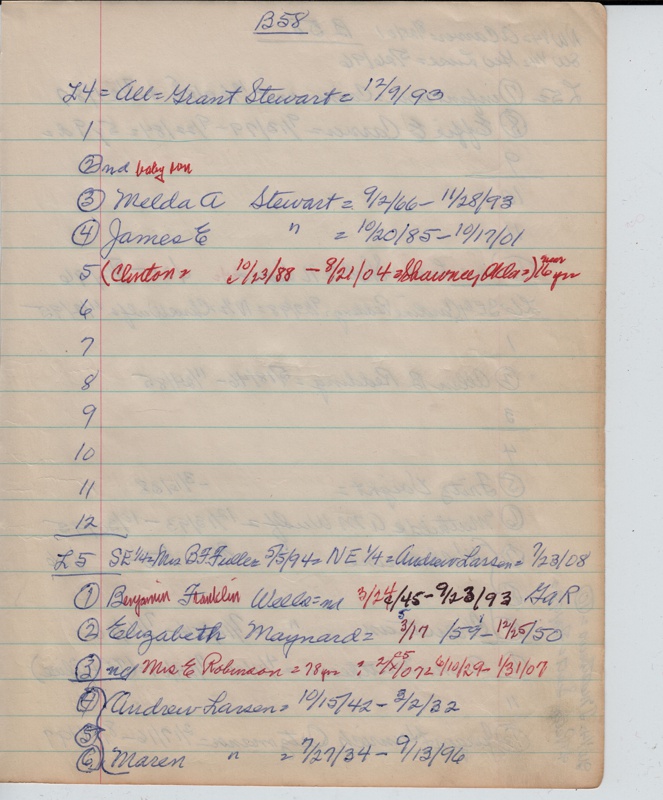 B58
L4 = All = Grant Stewart = 12/9/93
1
② nd baby son
③ Melda A Stewart = 9/2/66 - 11/28/93
④ James E " = 10/20/85 - 10/17/01
5 (Clinton = 10/23/88 - 8/21/04 = Shawnee, Okla =) near 16 yrs
6
7
8
9
10
11
12
L5 SE 1/4 = Mrs B F = 5/5/94 = NE 1/4 = Andrew Larsen = 7/23/08
① Benjamin Franklin Wells = nd 3/24/45 - 9/23/93 GaR
② Elizabeth Maynard = 3/17/59 - 12/25/50
③ nd Mrs E Robinson = 78 yrs ? = 6/10/29 - 1/31/07
④ Andrew Larsen = 10/15/42 - 3/2/32
⑤
⑥ Maren " = 7/27/34 - 9/13/96